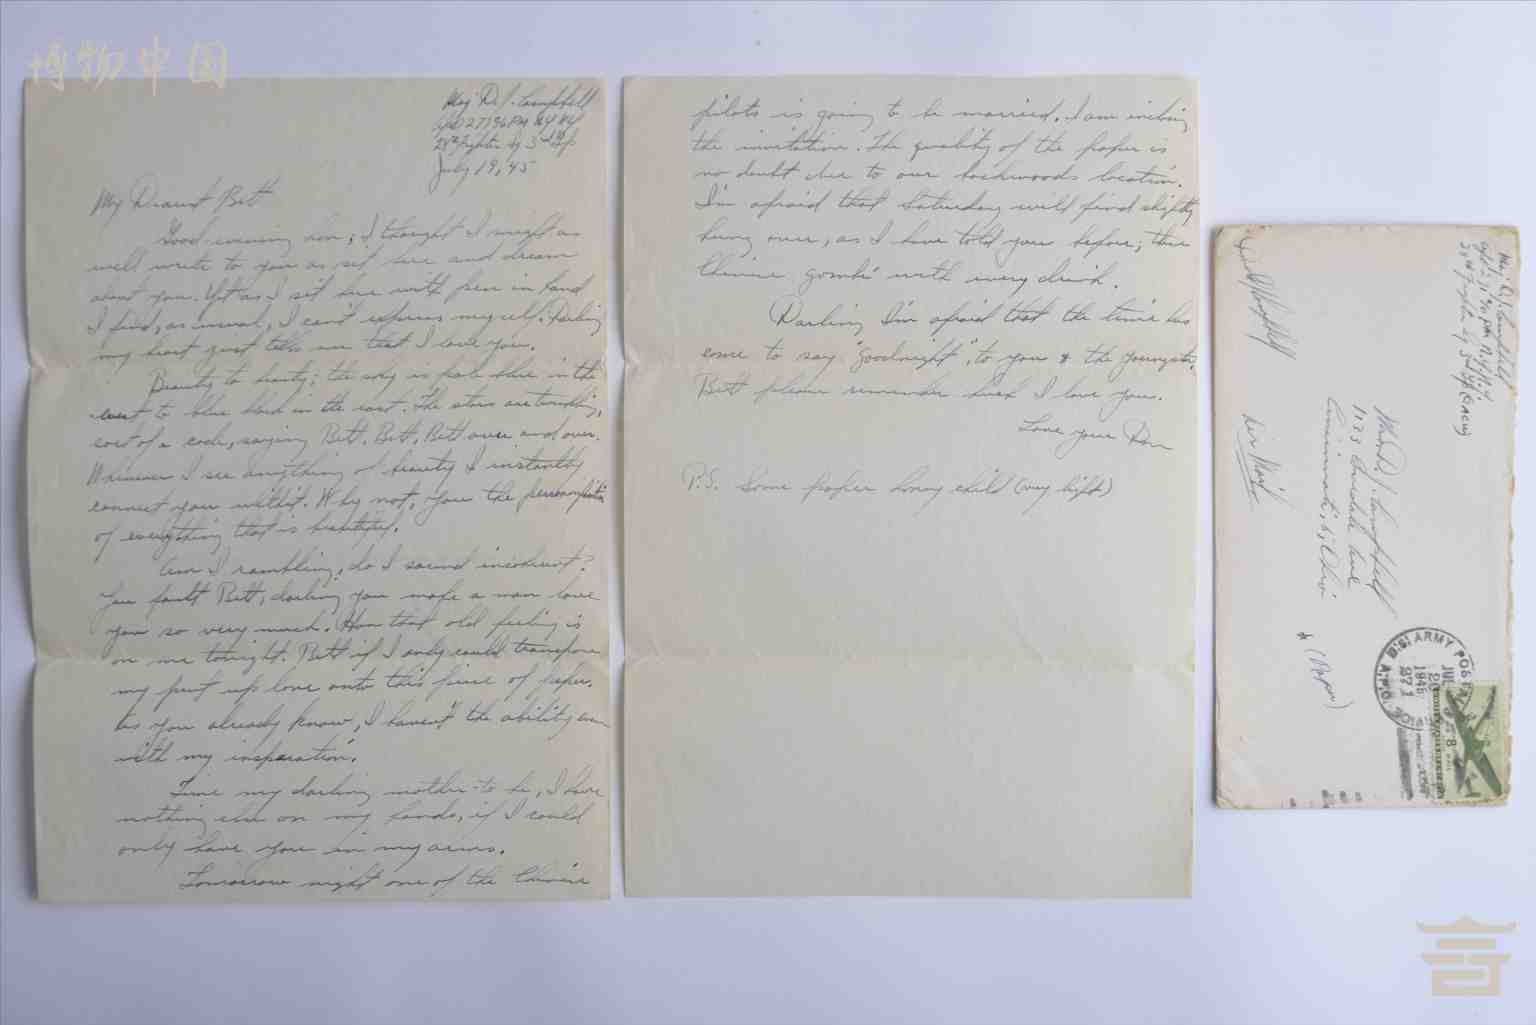 博物中国
Maj. D. J. Campbell
28th Fighter Sq 3rd Gp
July 19, 45
My Dearest Bett
Good-evening hon, I thought I might as
well write to you as sit here and dream
about you. Yet as I sit here with pen in hand
I find, as usual, I can't express myself. Darling
my heart just tells me that I love you.
Beauty to beauty; the sky is pale blue in the
west to blue black in the east. The stars are twinkling,
sort of a code, saying Bett, Bett, Bett over and over.
Whenever I see anything of beauty I instantly
connect you with it. Why not, you the personification
of everything that is beautiful.
Am I rambling, do I sound incoherent?
Your fault Bett, darling you make a man love
you so very much. Hon that old feeling is
on me tonight. Bett if I only could transpose
my pent up love onto this piece of paper.
As you already know, I haven't the ability even
with my insperation.
Time my darling mother-to be, I have
nothing else on my hands, if I could
only have you in my arms.
Tomorrow night one of the Chinese
pilots is going to be married. I am inclosing
the invitation. The quality of the paper is
no doubt due to our backwoods location.
I'm afraid that Saturday will find slightly
hung over, as I have told you before; these
Chinese gombé with every drink.
Darling I'm afraid that the time has
come to say "goodnight", to you & the youngster.
Bett please remember hush I love you.
Love your Don
P.S. Some paper honey child (very hifh)
Maj. D. J. Campbell
Mrs D. J. Campbell
1133 Ave
Cincinnati, 6, Ohio
Air Mail
(Paper)
U.S. ARMY POSTAL SERVICE A.P.O.
JUL
20
1945
271